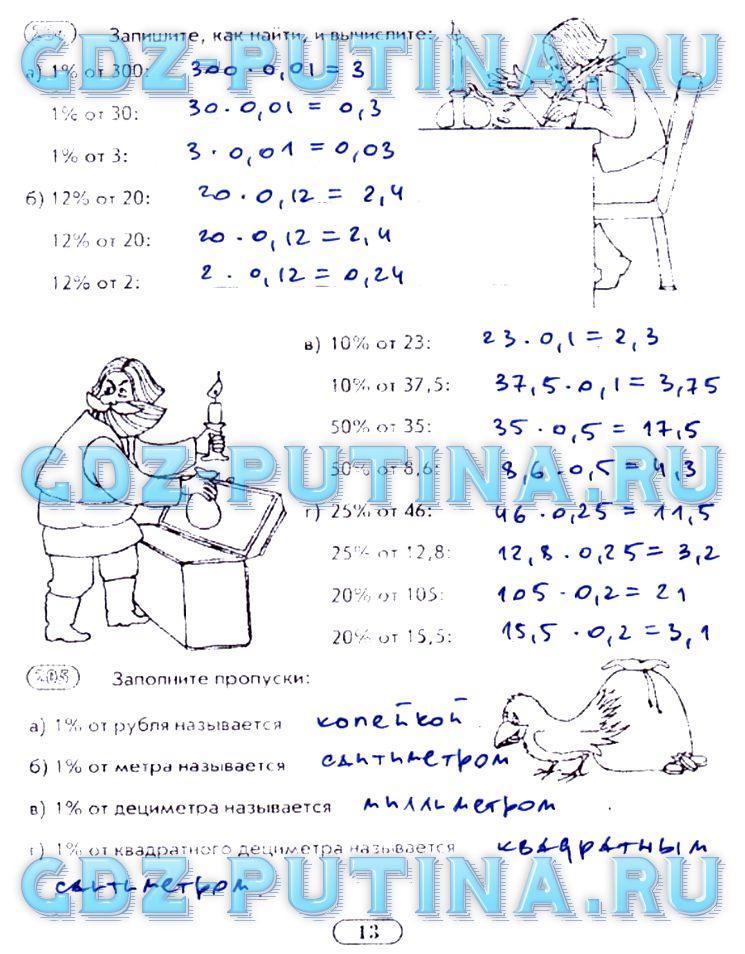 Запишите, как найти, и вычислите:
а) 1% от 300: 300 · 0,01 = 3
1% от 30: 30 · 0,01 = 0,3
1% от 3: 3 · 0,01 = 0,03
б) 12% от 20: 20 · 0,12 = 2,4
12% от 20: 20 · 0,12 = 2,4
12% от 2: 2 · 0,12 = 0,24
в) 10% от 23: 23 · 0,1 = 2,3
10% от 37,5: 37,5 · 0,1 = 3,75
50% от 35: 35 · 0,5 = 17,5
50% от 8,6: 8,6 · 0,5 = 4,3
г) 25% от 46: 46 · 0,25 = 11,5
25% от 12,8: 12,8 · 0,25 = 3,2
20% от 105: 105 · 0,2 = 21
20% от 15,5: 15,5 · 0,2 = 3,1
205 Заполните пропуски:
а) 1% от рубля называется копейкой.
б) 1% от метра называется сантиметром
в) 1% от дециметра называется миллиметром.
г) 1% от квадратного дециметра называется квадратным
сантиметром.
13
GDZ-PUTINA.RU
GDZ-PUTINA.RU
GDZ-PUTINA.RU